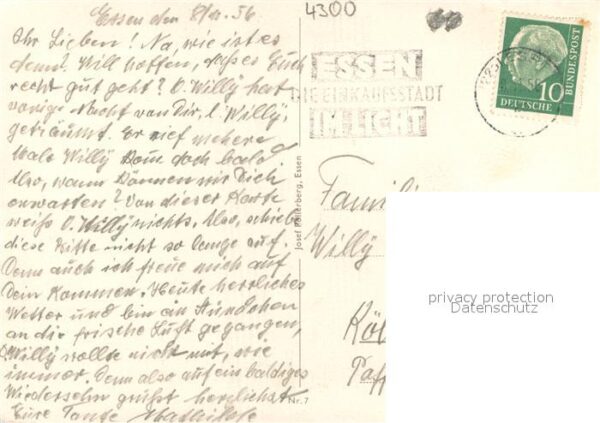 Essen den 8/11. 56
Ihr Lieben! Na, wie ist es
denn? Will hoffen, dass es Euch
recht gut geht? O. Willy hat
vorige Nacht von Dir, l. Willy,
geträumt. Er rief mehere
Male Willy komm doch bald.
Also, wann können wir Dich
erwarten? Von dieser Karte
weiß O. Willy nichts. Also, schiebe
diese Bitte nicht so lange auf.
Denn auch ich freue mich auf
Dein Kommen. Heute herrliches
Wetter und bin ein Stündchen
an die frische Luft gegangen,
O. Willy wollte nicht mit, wie
immer. Denn also auf ein baldiges
Wiedersehn grüßt herzlichst
Eure Tante Mathilde
4300
ESSEN
DIE EINKAUFSSTADT
IM LICHT
10
DEUTSCHE
BUNDESPOST
Josef Essen
Famili
Willy
Köl
Nr. 7
privacy protection
Datenschutz